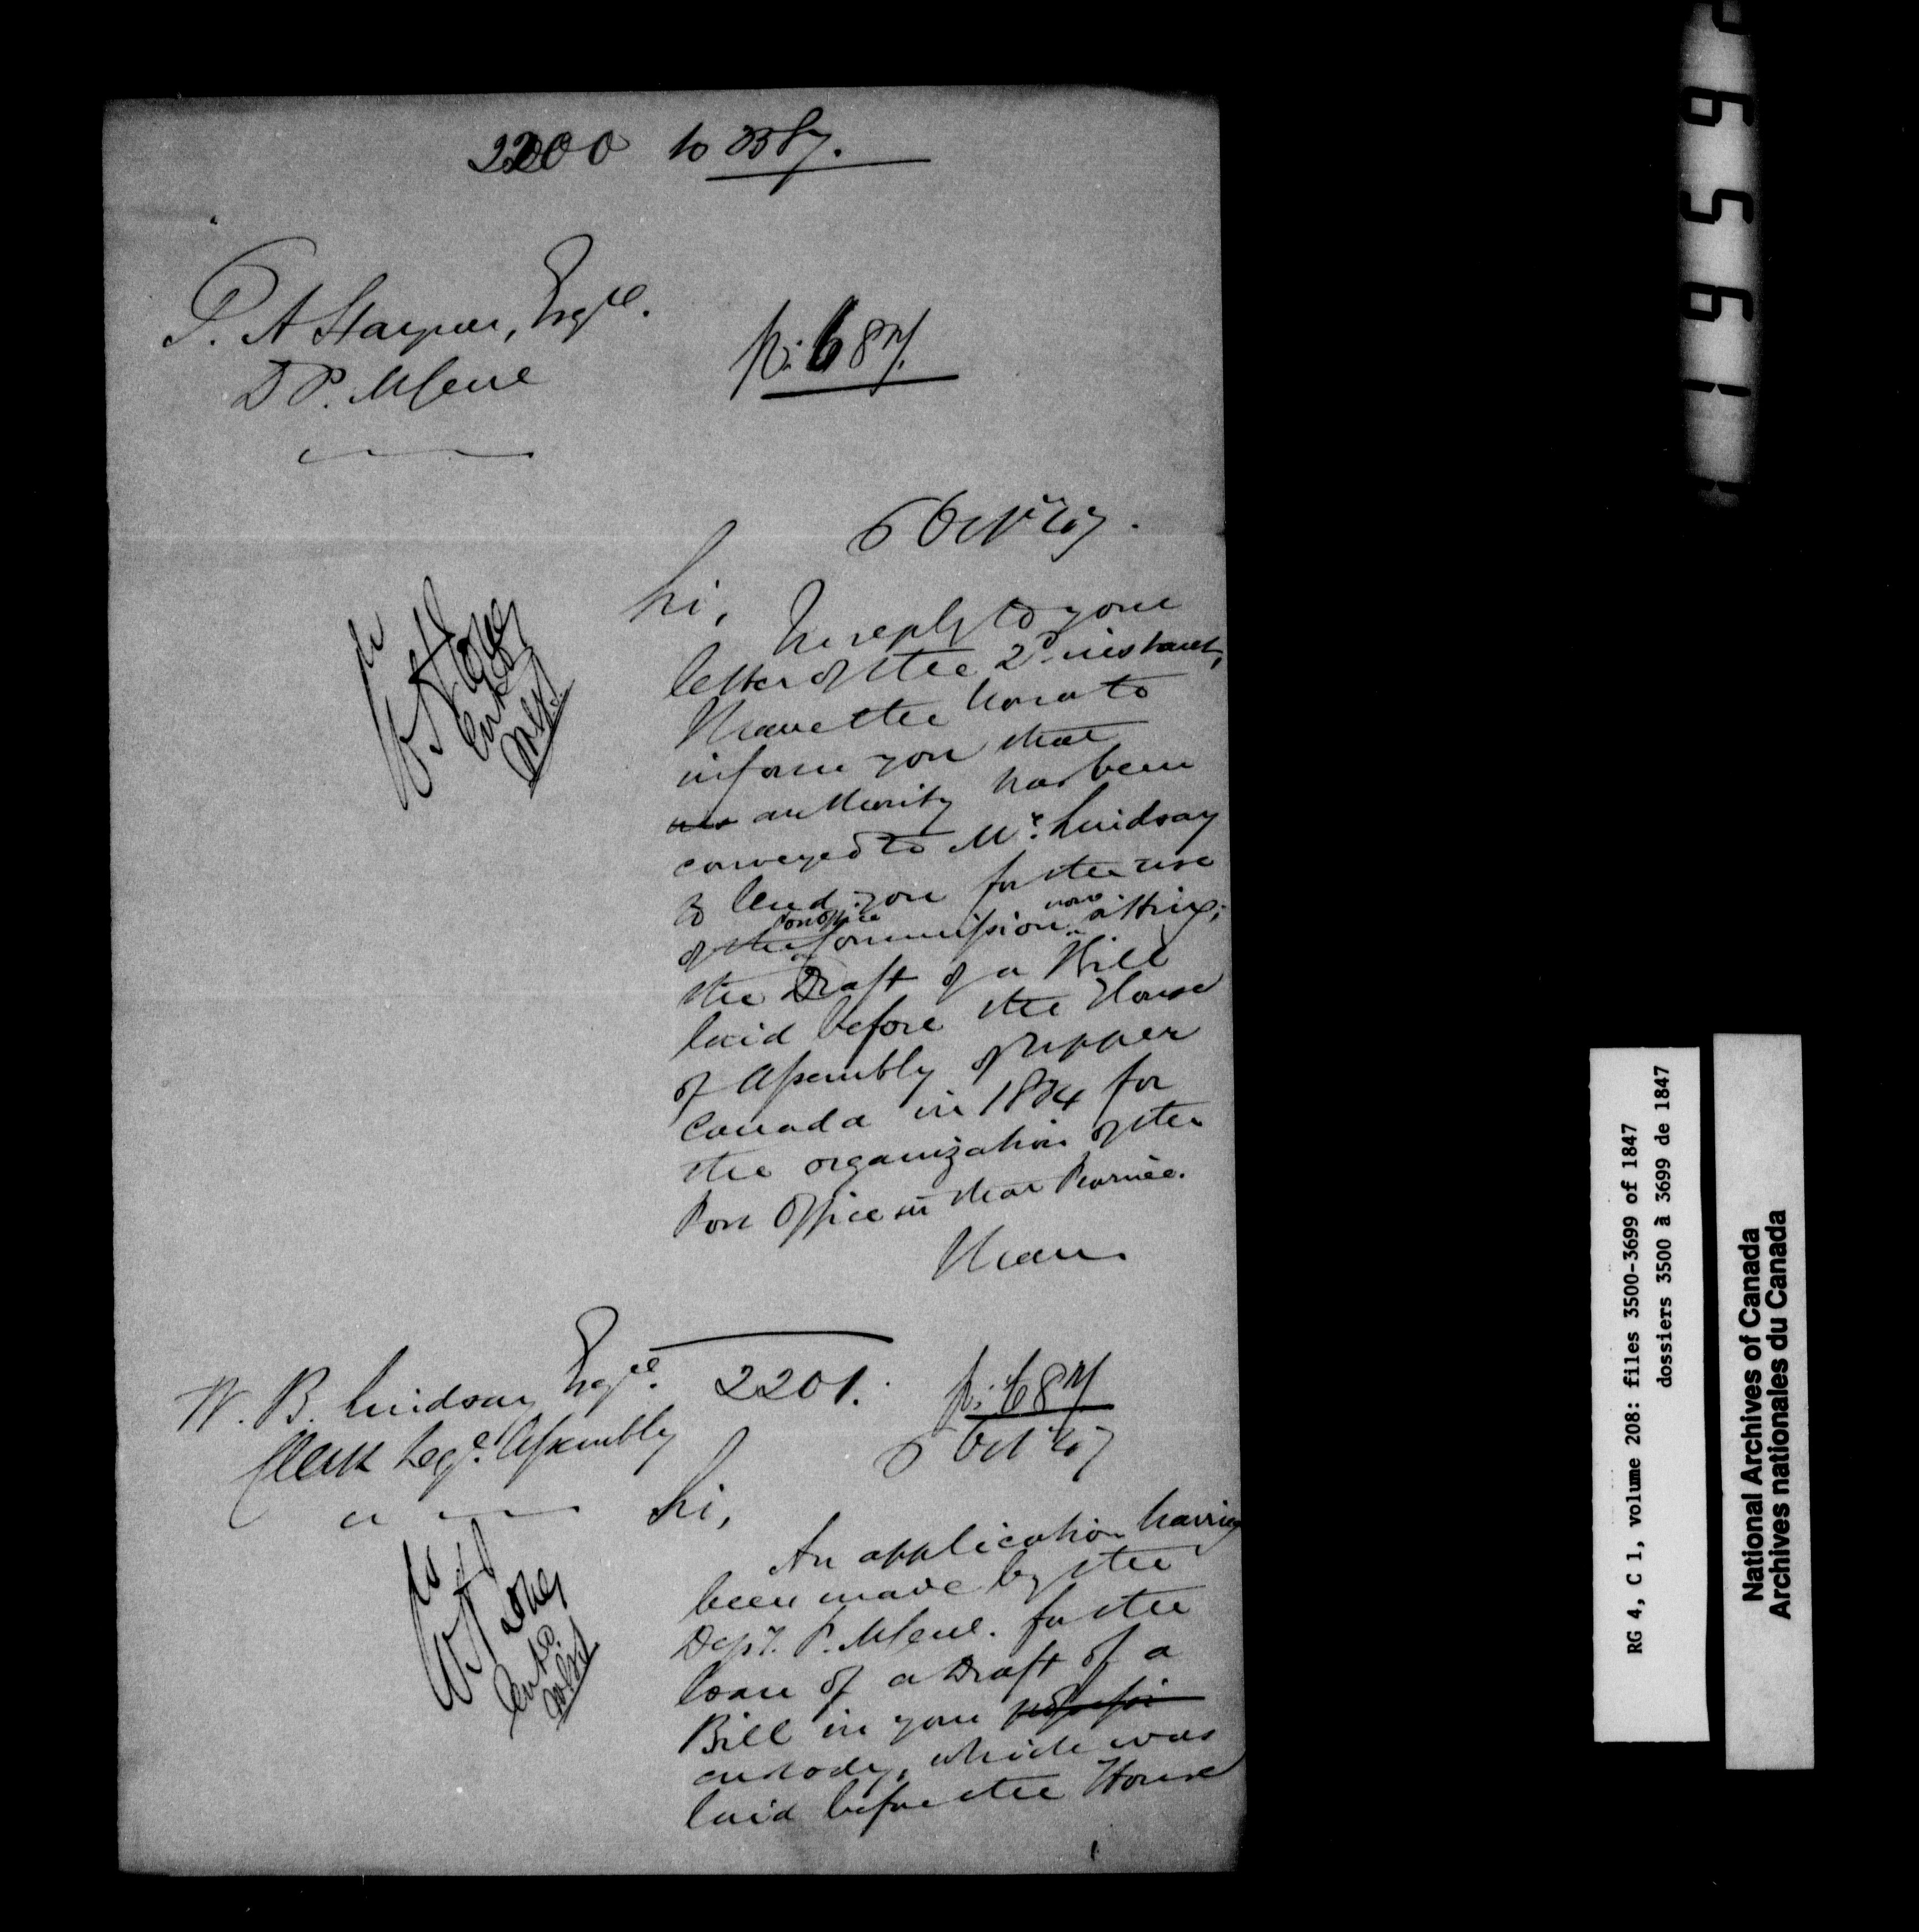 2200 to
T. A Stayner, Esqre.
D P. M Genl
p: 687
6 Octr 47.
Sir,
In reply to your
letter of the 2d instant,
I have the honor to
inform you that
authority has been
conveyed to Mr. Lindsay
to lend you for the use
of the Post Office Commission now sitting;
the Draft of a Bill
laid before the House
of Assembly of Upper
Canada in 1834 for
the organization of the
Post Office in that Province.
I have
W. B. Lindsay Esqre.
Clerk Legve. Assembly
2201.
p: 687
6 Octr 47
Sir,
An application having
been made by the
Depy. P. M Genl. for the
loan of a Draft of a
Bill in your
custody, which was
laid before the House
19556
RG 4, C 1, volume 208: files 3500-3699 of 1847
dossiers 3500 à 3699 de 1847
National Archives of Canada
Archives nationales du Canada